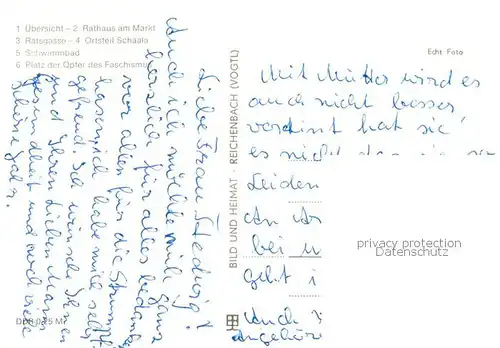 1 Übersicht – 2 Rathaus am Markt
3 Ratsgasse – 4 Ortsteil Schaala
5 Schwimmbad
6 Platz der Opfer des Faschismus
Echt Foto
BILD UND HEIMAT · REICHENBACH (VOGTL)
Liebe Frau Hedwig!
Auch ich möchte mich ganz
herzlich für alles bedanken
vor allem für die Strumpf
hosen, ich habe mich sehr
gefreut. Ich wünsche Ihnen
und Ihren lieben Mann
Gesundheit und noch viele
schöne Jahre.
Mit Mutter wird es
auch nicht besser
verdint hat sie
es nicht
Leiden
An
bei
geht
Auch
angehöre
privacy protection
Datenschutz
DDR 0,25 M